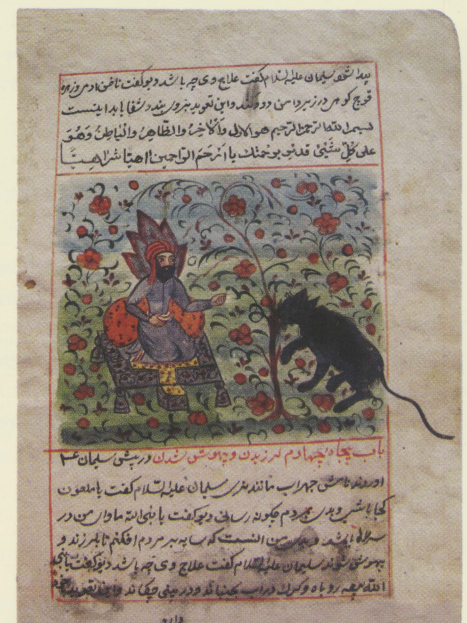 پیدا شود سلیمان علیه السلام گفت علاج وی چه باشد دیو گفت ناخن آدم و زهره
قوچ کوهی در زیر دامن دود کند و این تعویذ بر وی بندد شفا یابد اینست
بسم الله الرحمن الرحیم هو الاول والآخر والظاهر والباطن وهو
علی کل شئی قدیر برحمتك یا ارحم الراحمین اهیا شراهیا
باب پنجاه چهارم لرزیدن و بیهوش شدن در پیش سلیمان ع
اوردند نامش سلیمان علیه السلام گفت یا ملعون
کجا باشی و بدی بمردم چگونه رسانی دیو گفت یا نبی الله ماوای من در
باشد و بدی من انست که سایه بر مردم افکنم تا بلرزند و
بیهوش شوند سلیمان علیه السلام گفت علاج وی چه باشد دیو گفت یا نبی
الله روباه و کرك در اب و در بینی چکاند و این تعویذ